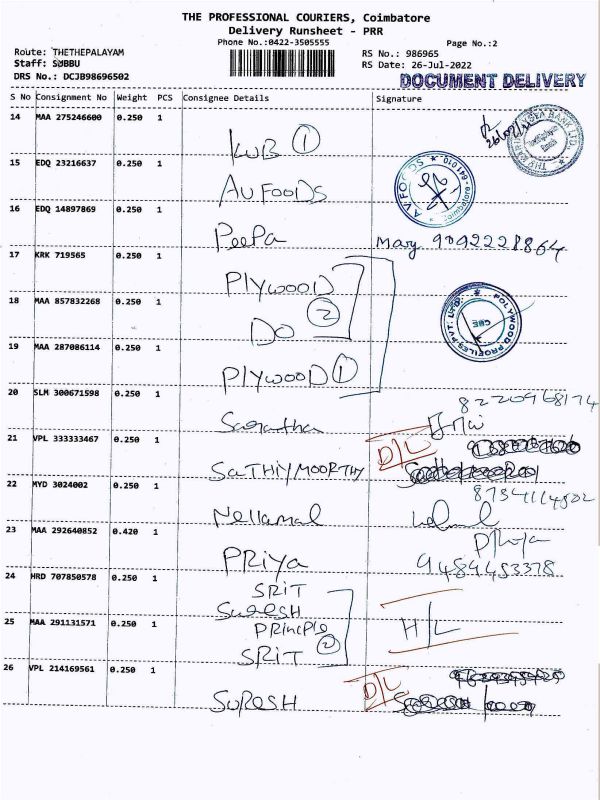 THE PROFESSIONAL COURIERS, Coimbatore
Delivery Runsheet - PRR
Phone No.:0422-3505555
Page No.:2
Route: THETHEPALAYAM
Staff: SUBBU
DRS No.: DCJB98696502
RS No.: 986965
RS Date: 26-Jul-2022
DOCUMENT DELIVERY
S No Consignment No Weight PCS Consignee Details Signature
14 MAA 275246600 0.250 1
KUB 1
15 EDQ 23216637 0.250 1
AV FOODS
AVFOODS
Coimbatore - 641 010
16 EDQ 14897869 0.250 1
PeePa Mary 9092228864
17 KRK 719565 0.250 1
PLYWOOD
18 MAA 857832268 0.250 1
DO 2
POLYWOOD PROFILES PVT. LTD.
CBE
19 MAA 287086114 0.250 1
PLYWOOD 1
20 SLM 300671598 0.250 1
8220968174
21 VPL 333333467 0.250 1
D/L
SaTHIYMOORTHY
22 MYD 3024002 0.250 1
Nellamal
23 MAA 292640852 0.420 1
PRiya
9489453378
24 HRD 707850578 0.250 1
SRIT
SuReSH
25 MAA 291131571 0.250 1
PRincPle
SRIT 2
H/L
26 VPL 214169561 0.250 1
D/L
SuReSH